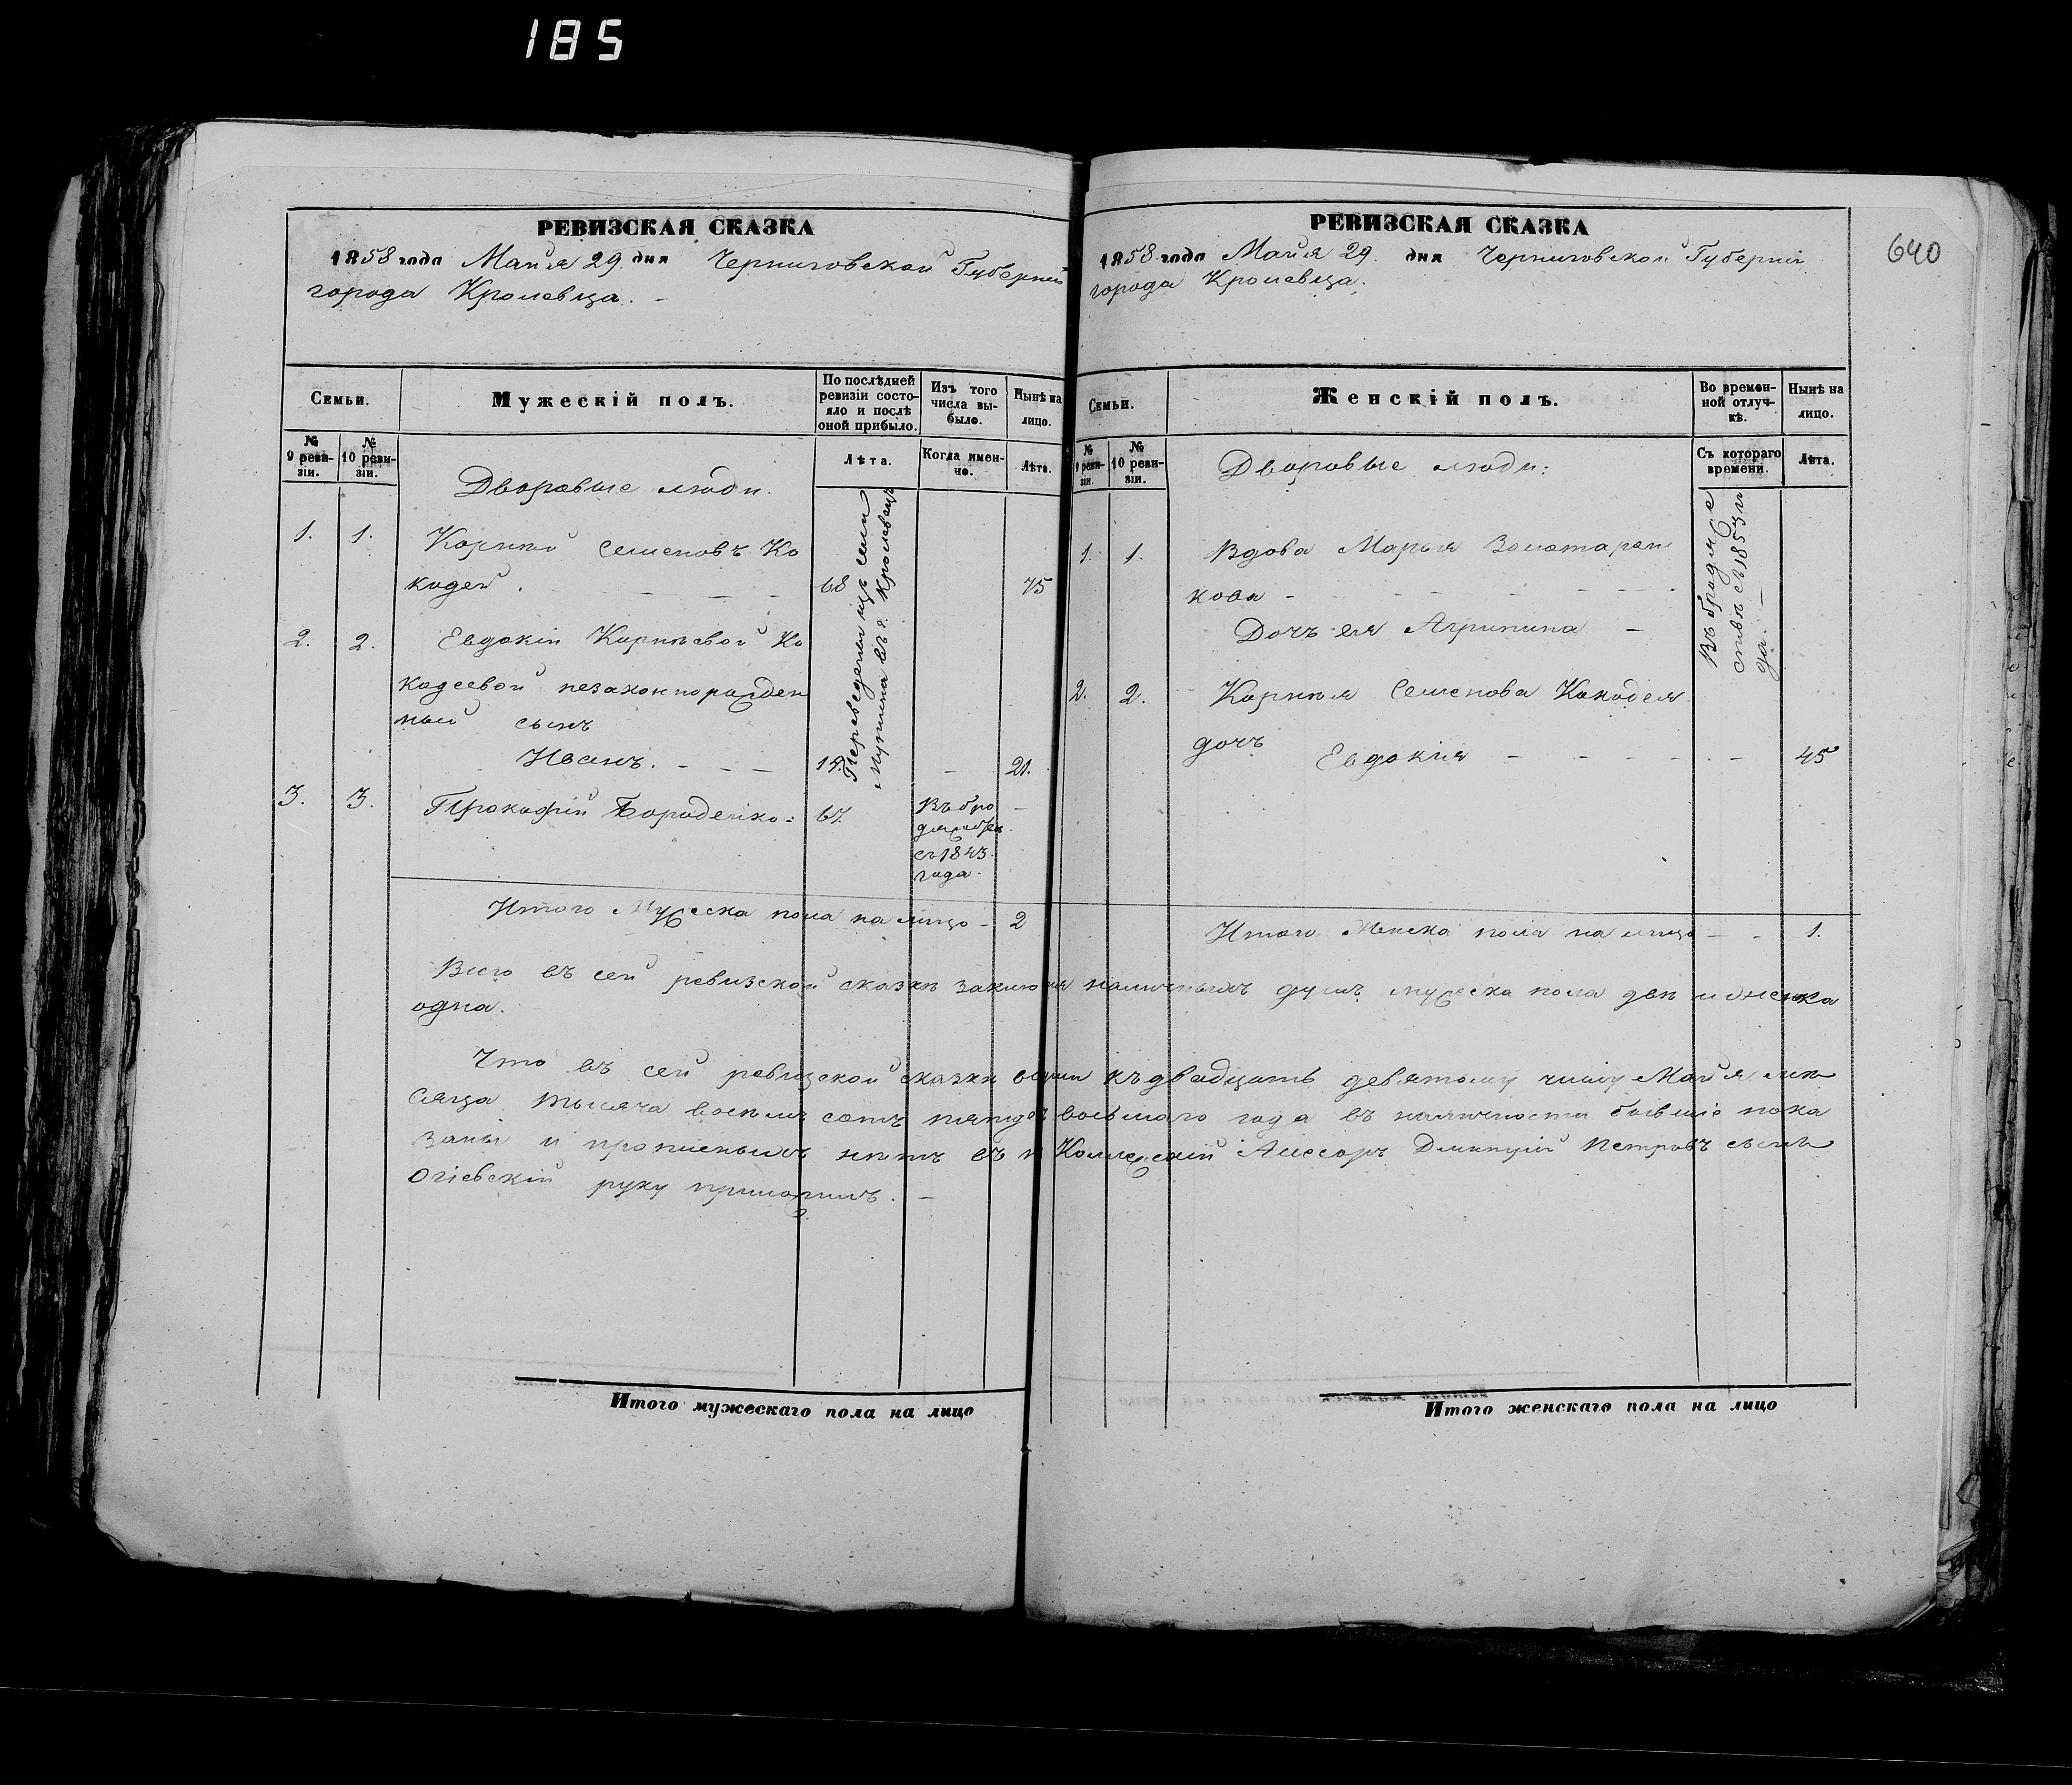 185
РЕВИЗСКАЯ СКАЗКА
1858 года Майя 29 дня Черниговской Губерніи
города Кролевца.
Семьи.
Мужескій полъ.
По послѣдней ревизіи состояло и послѣ оной прибыло.
Изъ того числа выбыло.
Нынѣ на лицо.
№ 9 ревизіи.
№ 10 ревизіи.
Лѣта.
Когда именно.
Лѣта.
Дворовые люди.
1. 1. Корній Семеновъ Ко
кодей. 68 75
2. 2. Евдокіи Корніевой Ко
кодеевой незаконнорожден
ный сынъ
Иванъ. 15 21.
Переведены изъ села
въ г. Кролевецъ
3. 3. Прокофій Бороденко 67.
Въ бро
дяжеств
съ 1843
года.
Итого Мужеска пола на лицо - 2
РЕВИЗСКАЯ СКАЗКА
1858 года Майя 29. дня Черниговской Губерніи
города Кролевца.
640
Семьи.
Женскій полъ.
Во временной отлучкѣ.
Нынѣ на лицо.
№ 9 ревизіи.
№ 10 ревизіи.
Съ котораго времени.
Лѣта.
Дворовые люди:
1. 1. Вдова Марья Золотарен
кова
Дочь ея Агрипина
Въ бродяже
ствѣ съ 1853 го
да.
2. 2. Корнія Семенова Кокодея
дочь Евдокія 45
Итого Женска пола на лицо 1.
Всего въ сей ревизской сказкѣ наличныхъ душъ мужеска пола двѣ и женска
одна.
Что въ сей ревизской сказки всѣми къ двадцать девятому числу Майя мѣ
сяца тысяча восемь сотъ восьмаго года въ наличности бывшіе пока
заны и прописныхъ нѣтъ въ Коллежскій Ассесоръ Дмитрій Петровъ сынъ
Огіевскій руку приложилъ.
Итого мужескаго пола на лицо
Итого женскаго пола на лицо